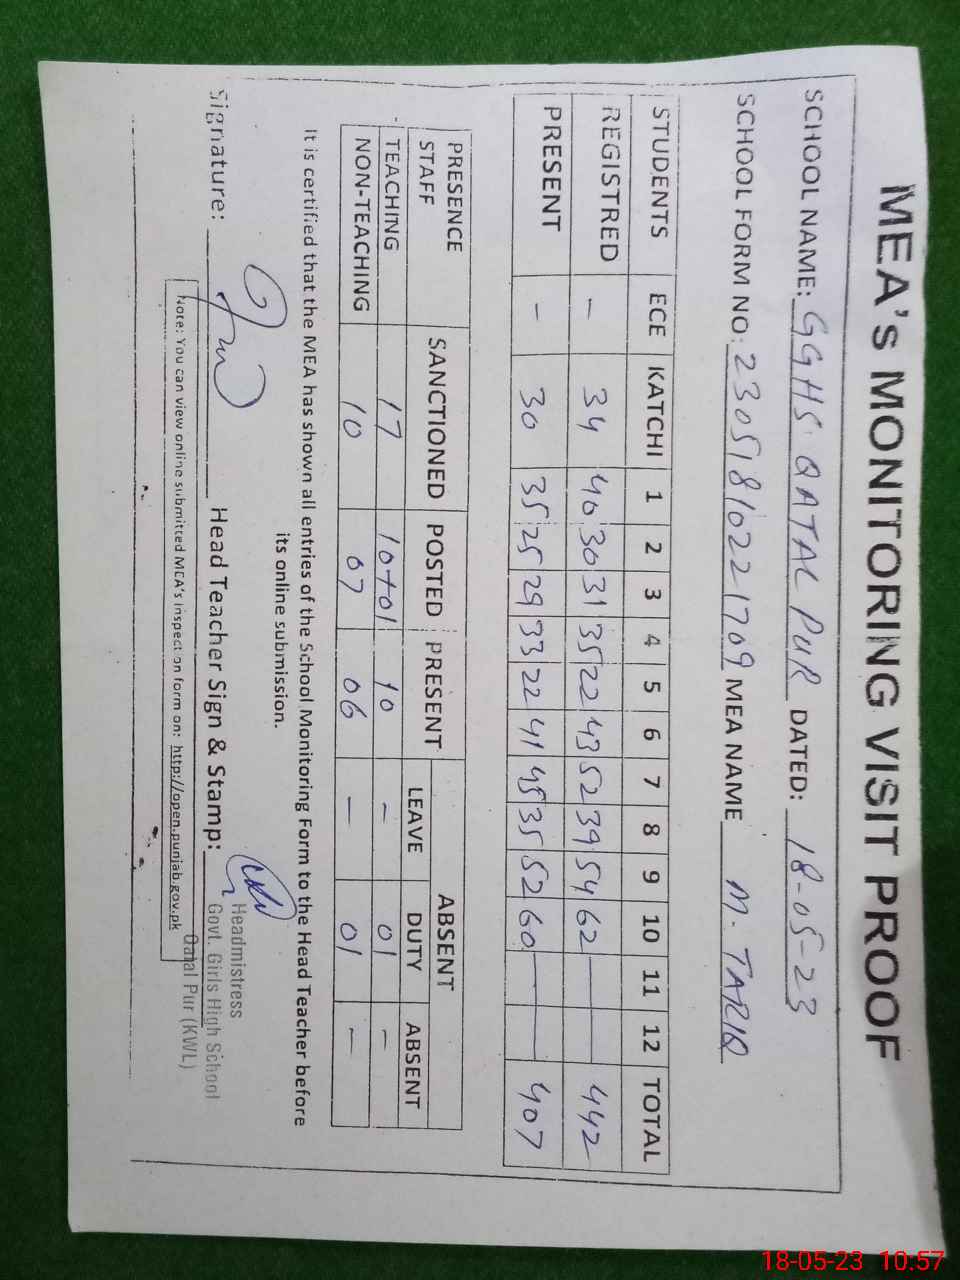 MEA's MONITORING VISIT PROOF
SCHOOL NAME: GGHS QATAL PUR DATED: 18-05-23
SCHOOL FORM NO: 23051810221709 MEA NAME M. TARIQ
STUDENTS ECE KATCHI 1 2 3 4 5 6 7 8 9 10 11 12 TOTAL
REGISTRED - 34 40 30 31 35 22 43 52 39 54 62 — — 442
PRESENT - 30 35 25 29 33 22 41 45 35 52 60 — — 407
PRESENCE STAFF SANCTIONED POSTED PRESENT ABSENT
LEAVE DUTY ABSENT
TEACHING 17 10+01 10 - 01 -
NON-TEACHING 10 07 06 - 01 -
It is certified that the MEA has shown all entries of the School Monitoring Form to the Head Teacher before
its online submission.
Signature: Head Teacher Sign & Stamp:
Headmistress
Govt. Girls High School
Qatal Pur (KWL)
Note: You can view online submitted MEA's inspection form on: http://open.punjab.gov.pk
18-05-23 10:57